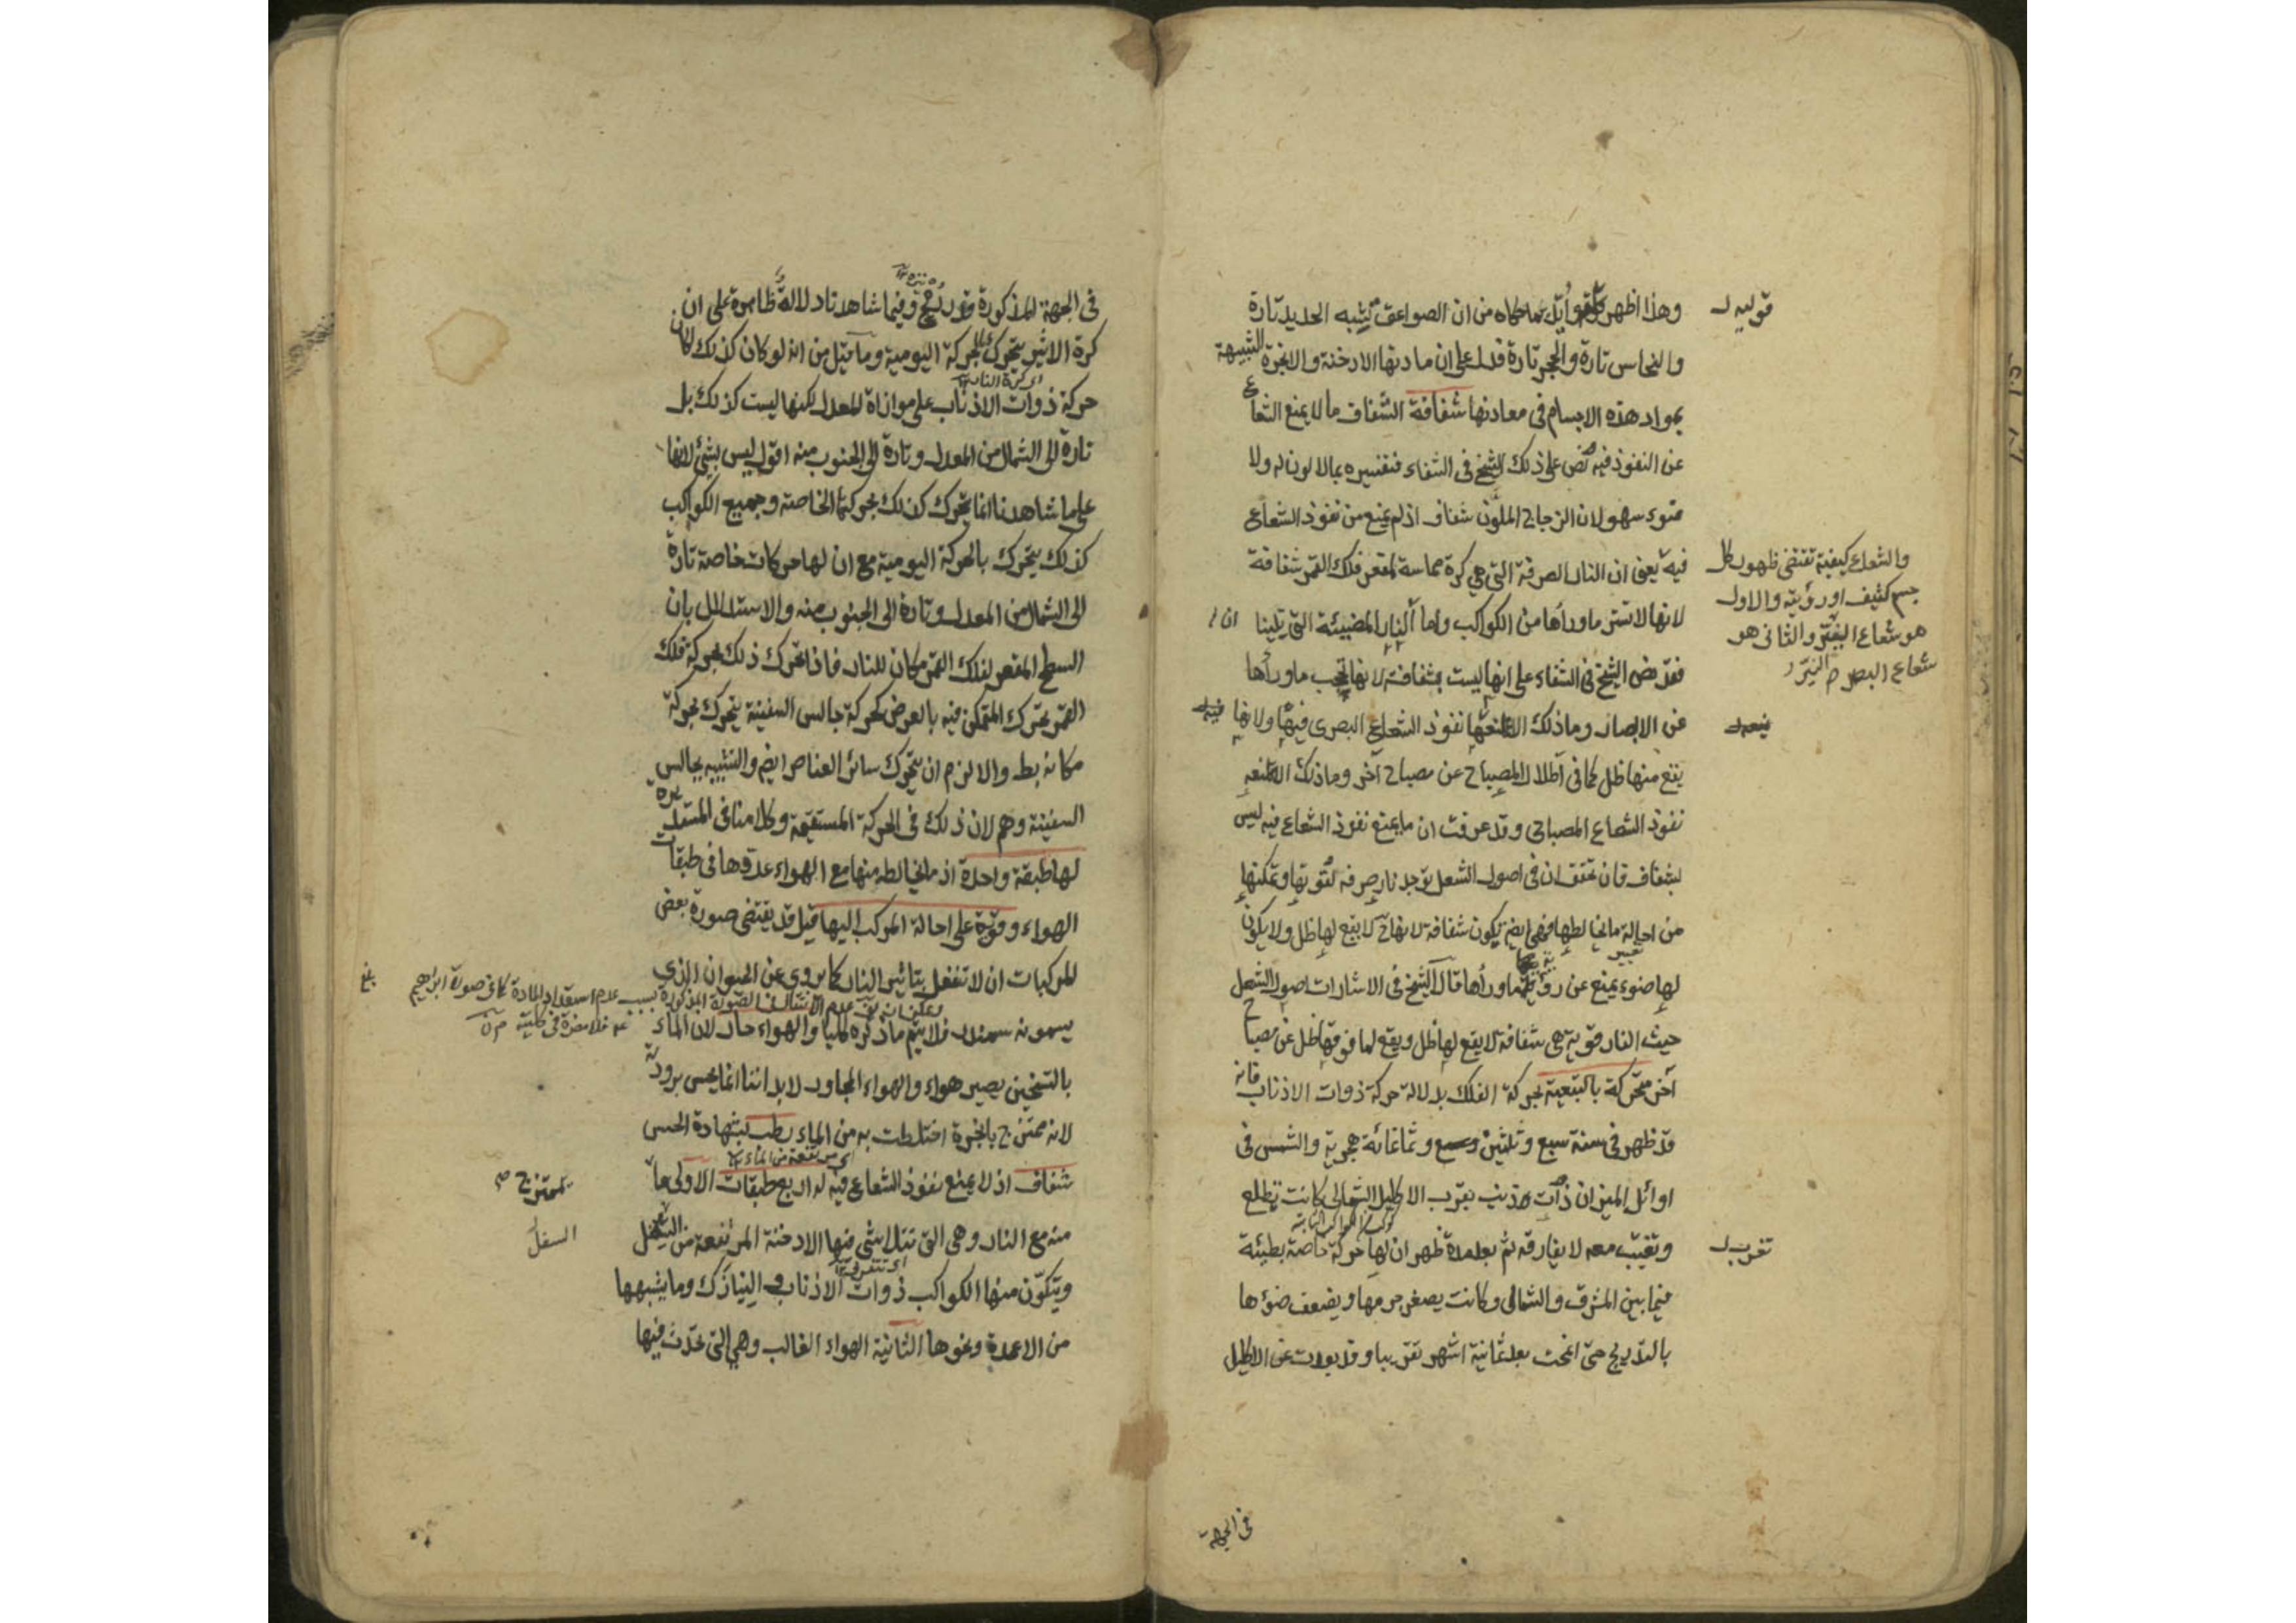 وهذا اظهر مما حكاه من ان الصواعق تشبه الحديد تارة
والنحاس تارة والحجر تارة فدل على ان مادتها الادخنة والابخرة الشبيهة
بمواد هذه الاجسام فى معادنها شفافة الشفاف ما لا يمنع الشعاع
عن النفوذ فيه نص على ذلك الشيخ فى الشفاء فتفسيره بما لا لون له ولا
ضوء سهو لان الزجاج الملون شفاف اذ لم يمنع من نفوذ الشعاع
فيه يعنى ان النار الصرفة التى هى كرة مماسة لمقعر فلك القمر شفافة
لانها لا تستر ماوراها من الكواكب واما النار المضيئة التى تلينا
فقد نص الشيخ فى الشفاء على انها ليست بشفافة لانها تحجب ماوراها
عن الابصار وماذلك الا نفوذ الشعاع البصرى فيها ولانها
يقع منها ظل كما فى اظلال المصباح عن مصباح آخر وماذلك الا لمنعه
نفوذ الشعاع المصباحى وقد عرفت ان ما يمنع نفوذ الشعاع فيه ليس
بشفاف فان تحقق ان فى اصول الشعل توجد نار صرفه لقوتها وتمكنها
من احالة ما يخالطها فهى ايضا يكون شفافة لانها ح لا يقع لها ظل ولا يكون
لها ضوء يمنع عن رؤية ماوراها قال الشيخ فى الاشارات اصول الشعل
حيث النار قوية هى شفافة لا يقع لها ظل ويقع لما فوقها ظل عن مصباح
آخر متحركة بالتبعية لحركة الفلك بدلالة حركة ذوات الاذناب فانه
قد ظهر فى سنة سبع وثلثين وثمانمائة هجرية والشمس فى
اوائل الميزان ذات ذنب بقرب الاكليل الشمالى كانت تطلع
وتغيب معه لا يفارقه ثم بعد مدة ظهر ان لها حركة خاصة بطيئة
فيما بين المشرق والشمال وكانت يصغر جرمها ويضعف ضوءها
بالتدريج حتى انمحت بعد ثمانية اشهر تقريبا وقد بعدت عن الاكليل
والشعاع كيفية تقتضى ظهور كل
جسم كثيف او رؤيته والاول
هو شعاع النير والثانى هو
شعاع البصر
فى الجهة
فى الجهة المذكورة وفيما شاهدنا دلالة ظاهرة على ان
كرة الاثير يتحرك بالحركة اليومية وما قيل من انه لو كان كذلك لكان
اى كرة النار
حركة ذوات الاذناب على موازاة المعدل لكنها ليست كذلك بل
تارة الى الشمال من المعدل وتارة الى الجنوب منه اقول ليس بشئ لانها
على ما شاهدنا انما يتحرك كذلك بحركتها الخاصة وجميع الكواكب
كذلك يتحرك بالحركة اليومية مع ان لها حركات خاصة تارة
الى الشمال من المعدل وتارة الى الجنوب منه والاستدلال بان
السطح المقعر لفلك القمر مكان للنار فاذا تحرك ذلك بحركة فلك
القمر تحرك المتمكن فيه بالعرض كحركة جالس السفينة يتحرك بحركة
مكانه بط والا لزم ان يتحرك سائر العناصر ايضا والتشبيه بجالس
السفينة وهم لان ذلك فى الحركة المستقيمة وكلامنا فى المستديرة
لها طبقة واحدة اذ ما يخالطه منها مع الهواء عدوها فى طبقات
الهواء وقوة على احالة المركب اليها قيل قد يقتضى صورة بعض
المركبات ان لا تنفعل بتاثير النار كما يروى عن الحيوان الذى
يسمونه سمندر فلا يتم ما ذكره كليا والهواء حار لان الماء
بالتسخين يصير هواء والهواء المجاور لابداننا انما يحس برودته
لانه ممتزج بابخرة اختلطت به من الماء رطب بشهادة الحس
شفاف اذ لا يمنع نفوذ الشعاع فيه له اربع طبقات الاولى ما
منه مع النار وهى التى تتلاشى فيها الادخنة المرتفعة من السفل
ويتكون منها الكواكب ذوات الاذناب والنيازك وما يشبهها
من الاعمدة ونحوها الثانية الهواء الغالب وهى التى تحدث فيها
يمتزج
السفل